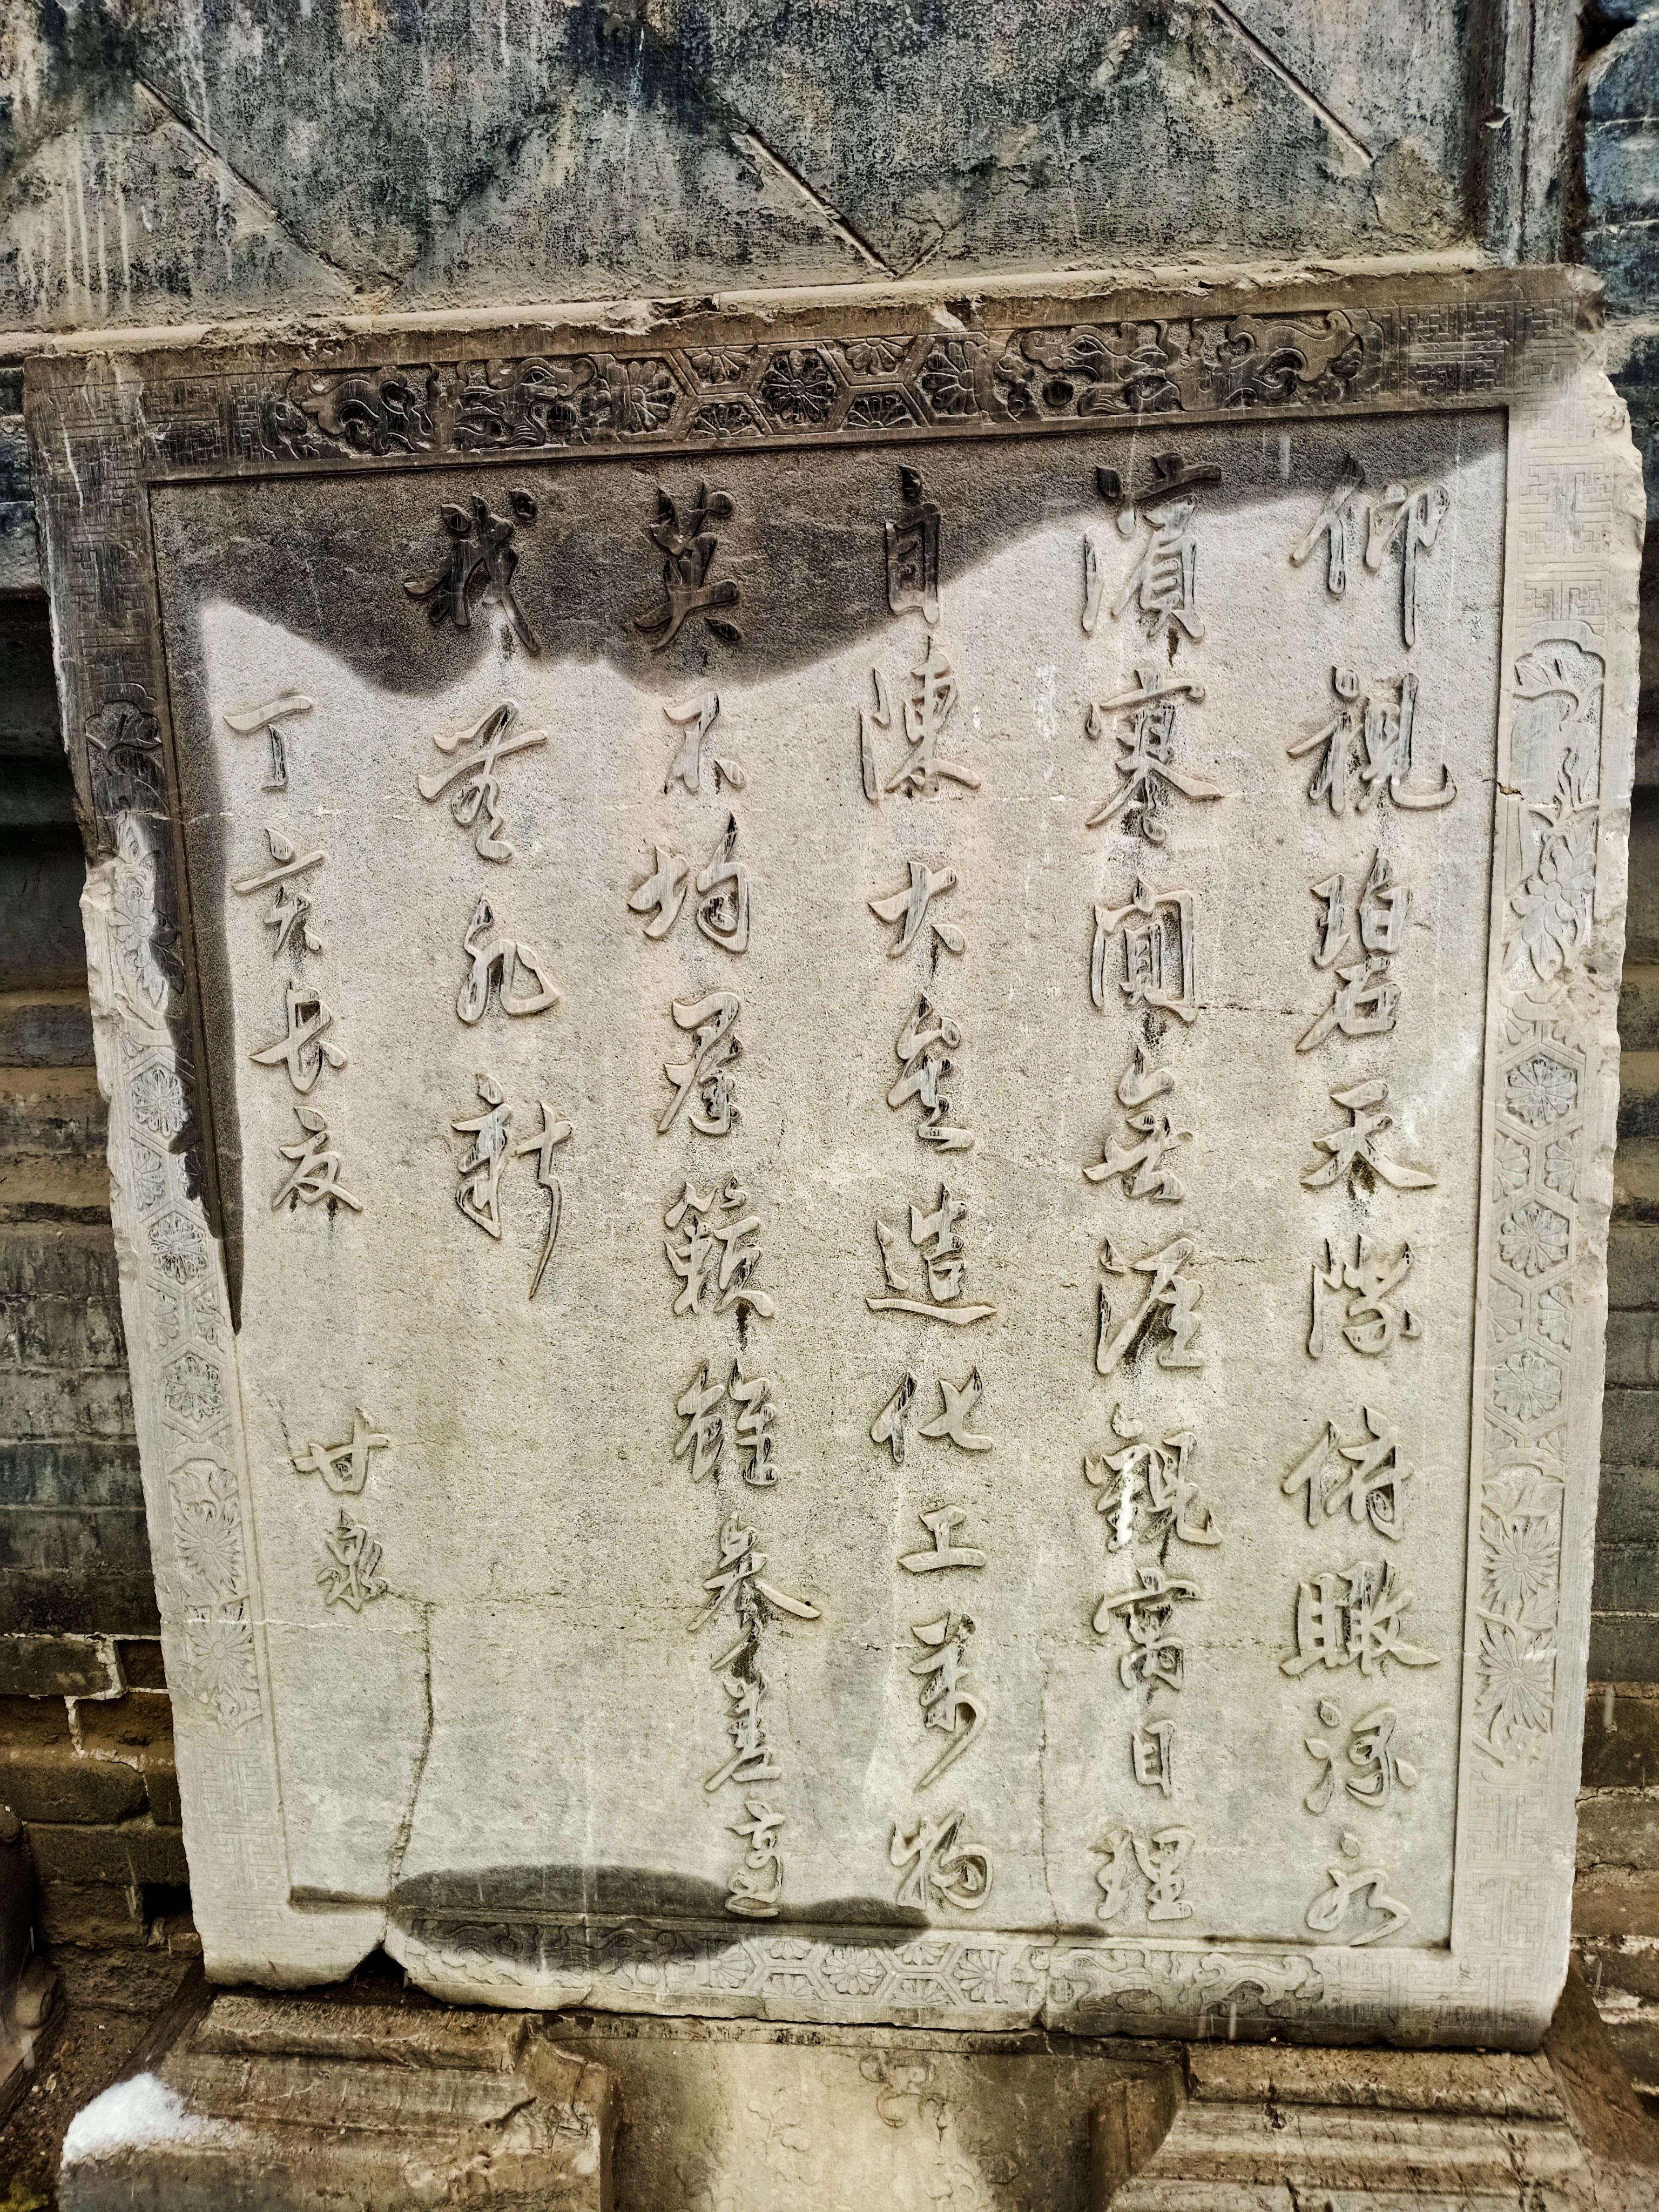 仰視碧天際俯瞰淥水
濱寥閒無涯觀寓目理
自陳大矣造化工萬物
莫不均羣籟雖參差適
我無非新
丁亥長夏
甘泉